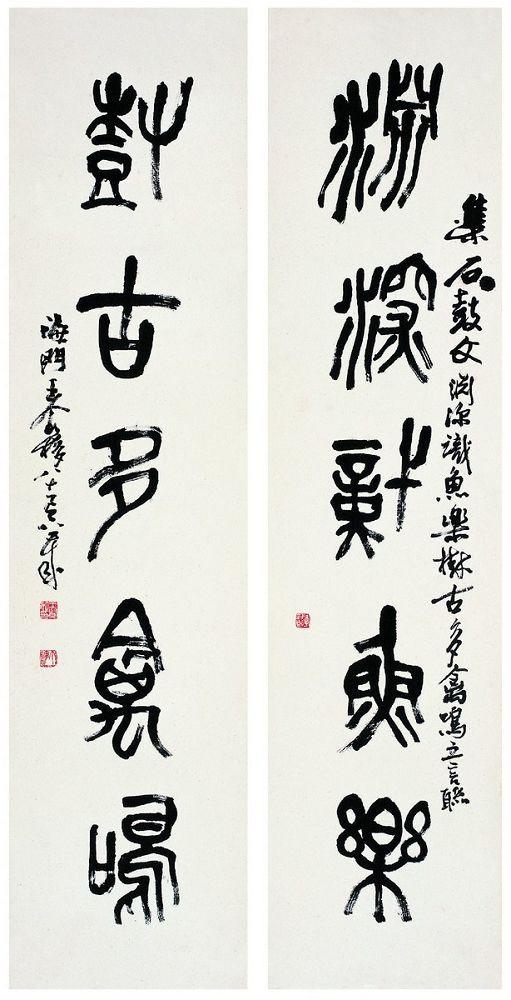 集石鼓文淵深識魚樂樹古多禽鳴五言聯
淵深識魚樂
樹古多禽鳴
海門王个簃八十